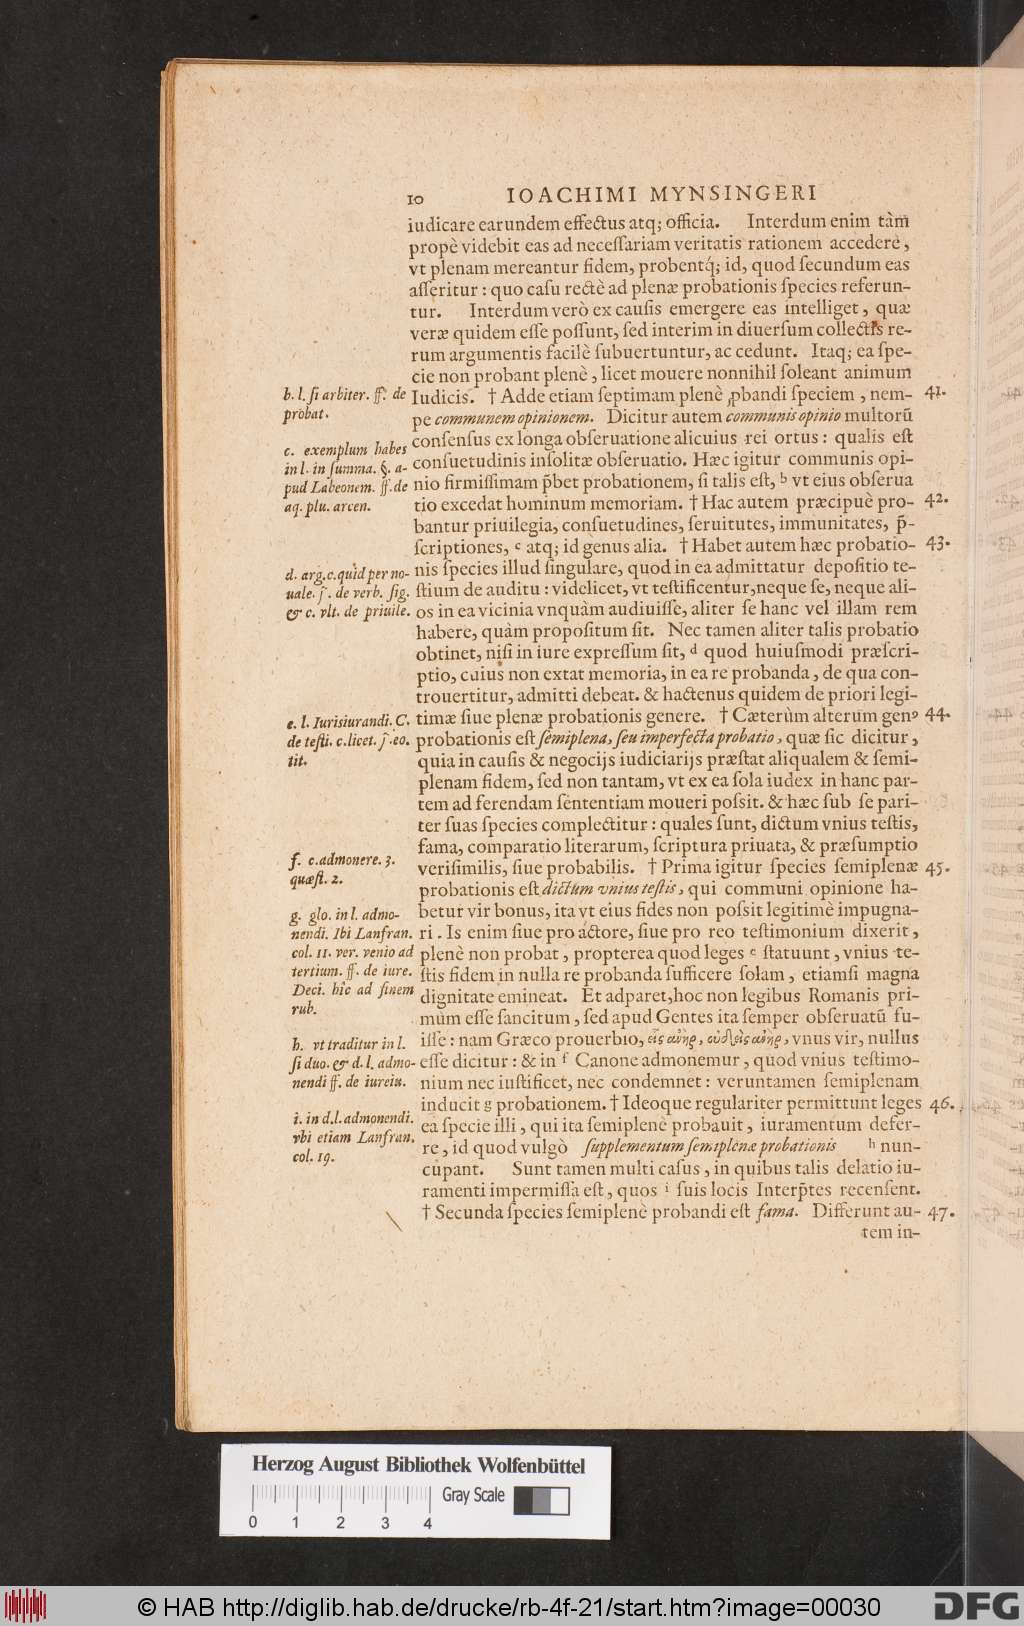 10 IOACHIMI MYNSINGERI
iudicare earundem effectus atq; officia. Interdum enim tàm
propè videbit eas ad neceſſariam veritatis rationem accederè,
vt plenam mereantur fidem, probentq́; id, quod ſecundum eas
aſſeritur : quo caſu rectè ad plenæ probationis ſpecies referun-
tur. Interdum verò ex cauſis emergere eas intelliget, quæ
veræ quidem eſſe poſſunt, ſed interim in diuerſum collectis re-
rum argumentis facilè ſubuertuntur, ac cedunt. Itaq; ea ſpe-
cie non probant plenè, licet mouere nonnihil ſoleant animum
Iudicis. † Adde etiam ſeptimam plenè ꝓbandi ſpeciem, nem- 41.
pe communem opinionem. Dicitur autem communis opinio multorū
conſenſus ex longa obſeruatione alicuius rei ortus : qualis eſt
conſuetudinis inſolitæ obſeruatio. Hæc igitur communis opi-
nio firmiſſimam p̄bet probationem, ſi talis eſt, b vt eius obſerua
tio excedat hominum memoriam. † Hac autem præcipuè pro- 42.
bantur priuilegia, conſuetudines, ſeruitutes, immunitates, p̄-
ſcriptiones, c atq; id genus alia. † Habet autem hæc probatio- 43.
nis ſpecies illud ſingulare, quod in ea admittatur depoſitio te-
ſtium de auditu : videlicet, vt teſtificentur, neque ſe, neque ali-
os in ea vicinia vnquàm audiuiſſe, aliter ſe hanc vel illam rem
habere, quàm propoſitum ſit. Nec tamen aliter talis probatio
obtinet, niſi in iure expreſſum ſit, d quod huiuſmodi præſcri-
ptio, cuius non extat memoria, in ea re probanda, de qua con-
trouertitur, admitti debeat. & hactenus quidem de priori legi-
timæ ſiue plenæ probationis genere. † Cæterùm alterum genꝰ 44.
probationis eſt ſemiplena, ſeu imperfecta probatio, quæ ſic dicitur,
quia in cauſis & negocijs iudiciarijs præſtat aliqualem & ſemi-
plenam fidem, ſed non tantam, vt ex ea ſola iudex in hanc par-
tem ad ferendam ſententiam moueri poſsit. & hæc ſub ſe pari-
ter ſuas ſpecies complectitur : quales ſunt, dictum vnius teſtis,
fama, comparatio literarum, ſcriptura priuata, & præſumptio
veriſimilis, ſiue probabilis. † Prima igitur ſpecies ſemiplenæ 45.
probationis eſt dictum vnius teſtis, qui communi opinione ha-
betur vir bonus, ita vt eius fides non poſsit legitimè impugna-
ri. Is enim ſiue pro actore, ſiue pro reo teſtimonium dixerit,
plenè non probat, propterea quod leges e ſtatuunt, vnius te-
ſtis fidem in nulla re probanda ſufficere ſolam, etiamſi magna
dignitate emineat. Et adparet, hoc non legibus Romanis pri-
mùm eſſe ſancitum, ſed apud Gentes ita ſemper obſeruatū fu-
iſſe : nam Græco prouerbio, εἷς ἀνὴρ, οὐδεὶς ἀνὴρ, vnus vir, nullus
eſſe dicitur : & in f Canone admonemur, quod vnius teſtimo-
nium nec iuſtificet, nec condemnet : veruntamen ſemiplenam
inducit g probationem. † Ideoque regulariter permittunt leges 46.
ea ſpecie illi, qui ita ſemiplenè probauit, iuramentum defer-
re, id quod vulgò ſupplementum ſemiplenæ probationis h nun-
cupant. Sunt tamen multi caſus, in quibus talis delatio iu-
ramenti impermiſſa eſt, quos i ſuis locis Interp̄tes recenſent.
† Secunda ſpecies ſemiplenè probandi eſt fama. Differunt au- 47.
tem in-
b. l. ſi arbiter. ff. de
probat.
c. exemplum habes
in l. in ſumma. §. a-
pud Labeonem. ff. de
aq. plu. arcen.
d. arg. c. quid per no-
uale. ſ. de verb. ſig.
& c. vlt. de priuile.
e. l. Iurisiurandi. C.
de teſti. c. licet. ſ. eo.
tit.
f. c. admonere. 3.
quæſt. 2.
g. glo. in l. admo-
nendi. Ibi Lanfran.
col. 11. ver. venio ad
tertium. ff. de iure.
Deci. hîc ad finem
rub.
h. vt traditur in l.
ſi duo. & d. l. admo-
nendi ff. de iureiu.
i. in d. l. admonendi.
vbi etiam Lanfran.
col. 19.
Herzog August Bibliothek Wolfenbüttel
Gray Scale
0 1 2 3 4
© HAB http://diglib.hab.de/drucke/rb-4f-21/start.htm?image=00030
DFG